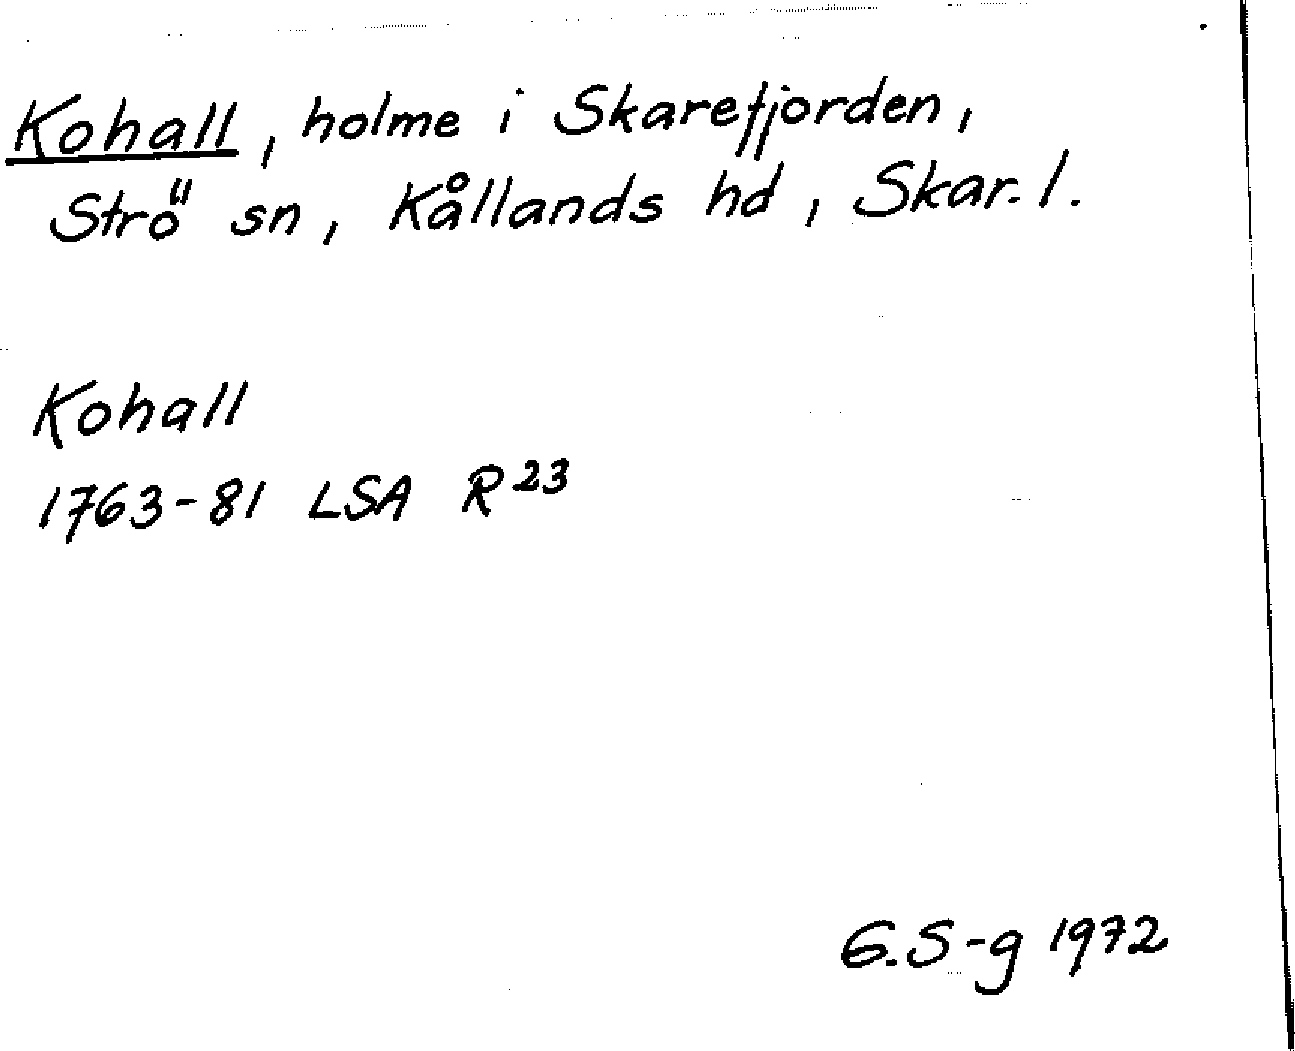 Kohall, holme i Skarefjorden,
Strö sn, Kållands hd, Skar. l.
Kohall
1763-81 LSA R23
G.S-g 1972